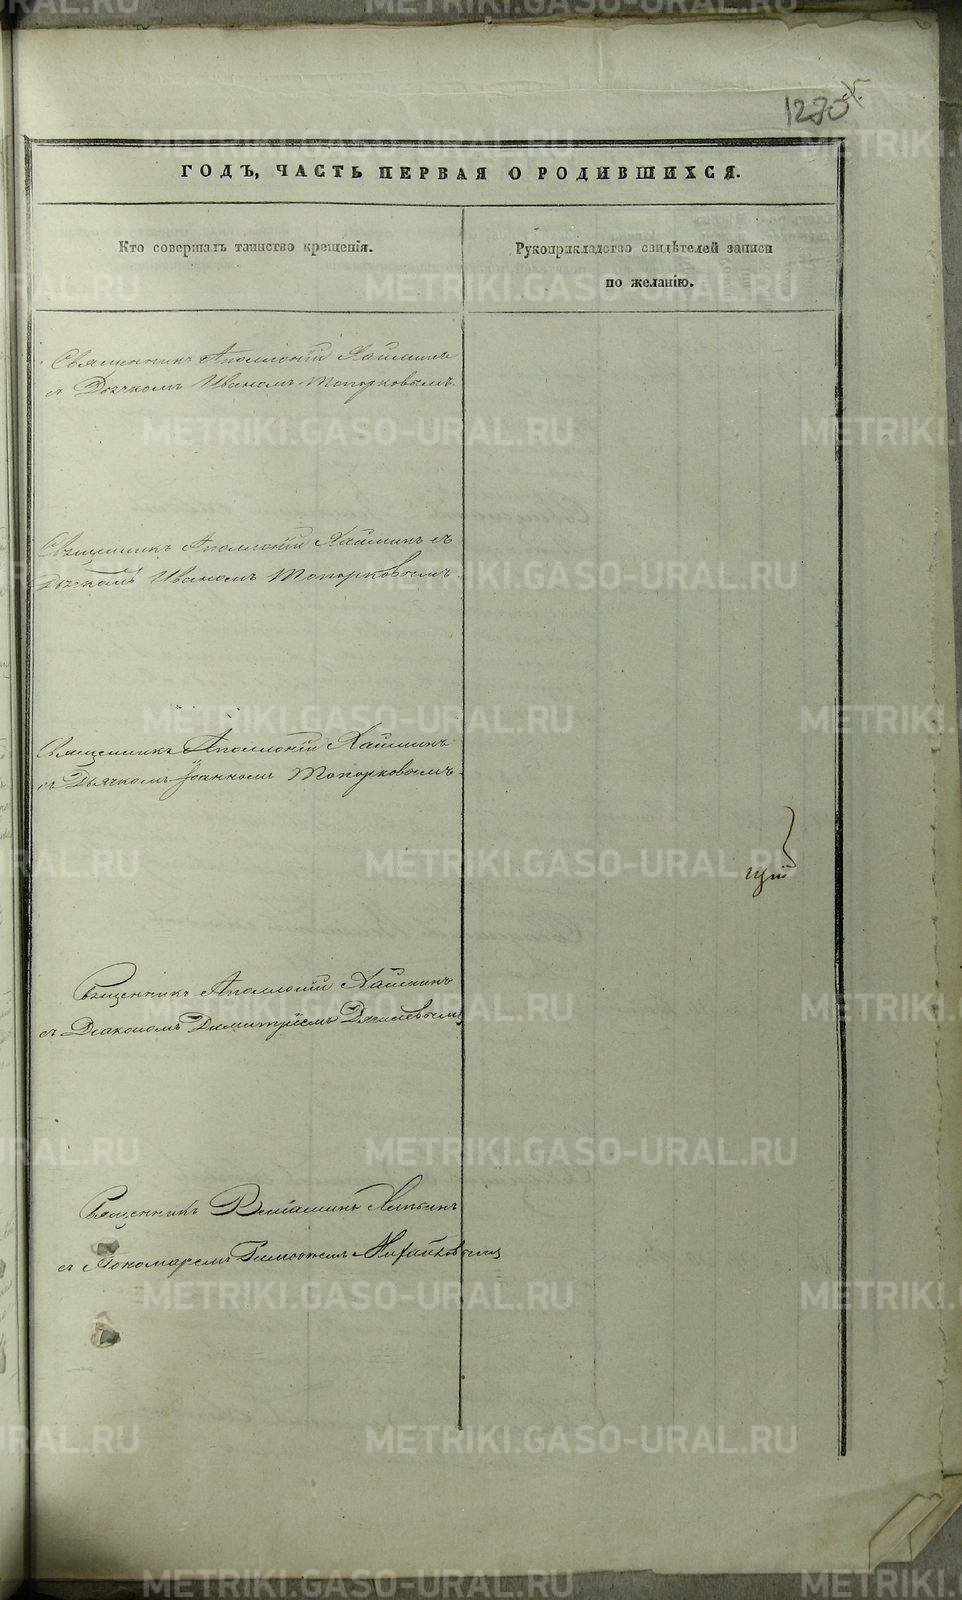 1270
ГОДЪ, ЧАСТЬ ПЕРВАЯ О РОДИВШИХСЯ.
Кто совершалъ таинство крещенія.
Рукоприкладство свидѣтелей записи
по желанію.
Священникъ Аполлоній Хайминъ
съ Дьячкомъ Иваномъ Топорковымъ.
Священникъ Аполлоній Хайминъ съ
Дьячкомъ Иваномъ Топорковымъ.
Священникъ Аполлоній Хайминъ
съ Дьячкомъ Іоанномъ Топорковымъ.
щій
Священникъ Аполлоній Хайминъ
съ Діакономъ Димитріемъ
Священникъ Веніаминъ
съ Пономаремъ
METRIKI.GASO-URAL.RU